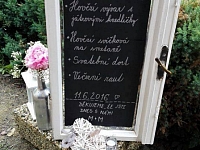 Hovězí vývar s
játrovými knedlíčky
* Hovězí svíčková
na smetaně
* Svatební dort
* Večerní raut
11.6.2016 ♡
DĚKUJEME, ŽE JSTE
DNES S NÁMI
M+M